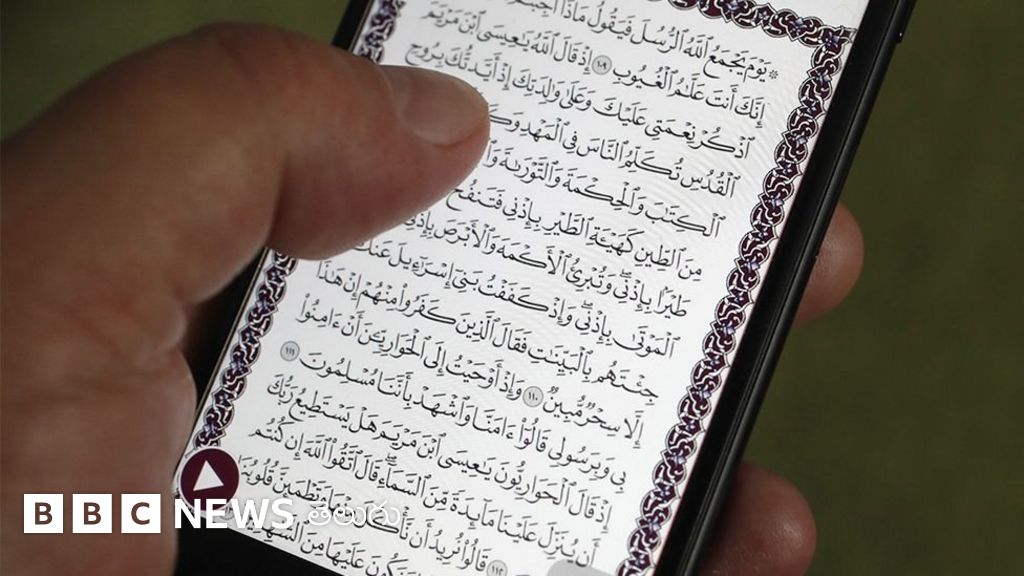 يَوْمَ يَجْمَعُ ٱللَّهُ ٱلرُّسُلَ فَيَقُولُ مَاذَآ
إِنَّكَ أَنتَ عَلَّٰمُ ٱلْغُيُوبِ ١٠٩ إِذْ قَالَ ٱللَّهُ يَٰعِيسَى ٱبْنَ مَرْيَمَ
ٱذْكُرْ نِعْمَتِى عَلَيْكَ وَعَلَىٰ وَٰلِدَتِكَ إِذْ أَيَّدتُّكَ بِرُوحِ
ٱلْقُدُسِ تُكَلِّمُ ٱلنَّاسَ فِى ٱلْمَهْدِ
ٱلْكِتَٰبَ وَٱلْحِكْمَةَ وَٱلتَّوْرَىٰةَ
مِنَ ٱلطِّينِ كَهَيْـَٔةِ ٱلطَّيْرِ بِإِذْنِى فَتَنفُخُ
طَيْرًۢا بِإِذْنِى وَتُبْرِئُ ٱلْأَكْمَهَ وَٱلْأَبْرَصَ بِإِذْنِى
ٱلْمَوْتَىٰ بِإِذْنِى وَإِذْ كَفَفْتُ بَنِىٓ إِسْرَٰٓءِيلَ عَنكَ
جِئْتَهُم بِٱلْبَيِّنَٰتِ فَقَالَ ٱلَّذِينَ كَفَرُوا۟ مِنْهُمْ إِنْ هَٰذَآ
إِلَّا سِحْرٌ مُّبِينٌ ١١٠ وَإِذْ أَوْحَيْتُ إِلَى ٱلْحَوَارِيِّـۧنَ أَنْ ءَامِنُوا۟
بِى وَبِرَسُولِى قَالُوٓا۟ ءَامَنَّا وَٱشْهَدْ بِأَنَّنَا مُسْلِمُونَ ١١١
إِذْ قَالَ ٱلْحَوَارِيُّونَ يَٰعِيسَى ٱبْنَ مَرْيَمَ هَلْ يَسْتَطِيعُ رَبُّكَ
أَن يُنَزِّلَ عَلَيْنَا مَآئِدَةً مِّنَ ٱلسَّمَآءِ قَالَ ٱتَّقُوا۟ ٱللَّهَ إِن كُنتُم
١١٢ قَالُوا۟ نُرِيدُ أَن نَّأْكُلَ مِنْهَا وَتَطْمَئِنَّ قُلُوبُنَا
وَنَكُونَ عَلَيْهَا مِنَ
BBC NEWS తెలుగు